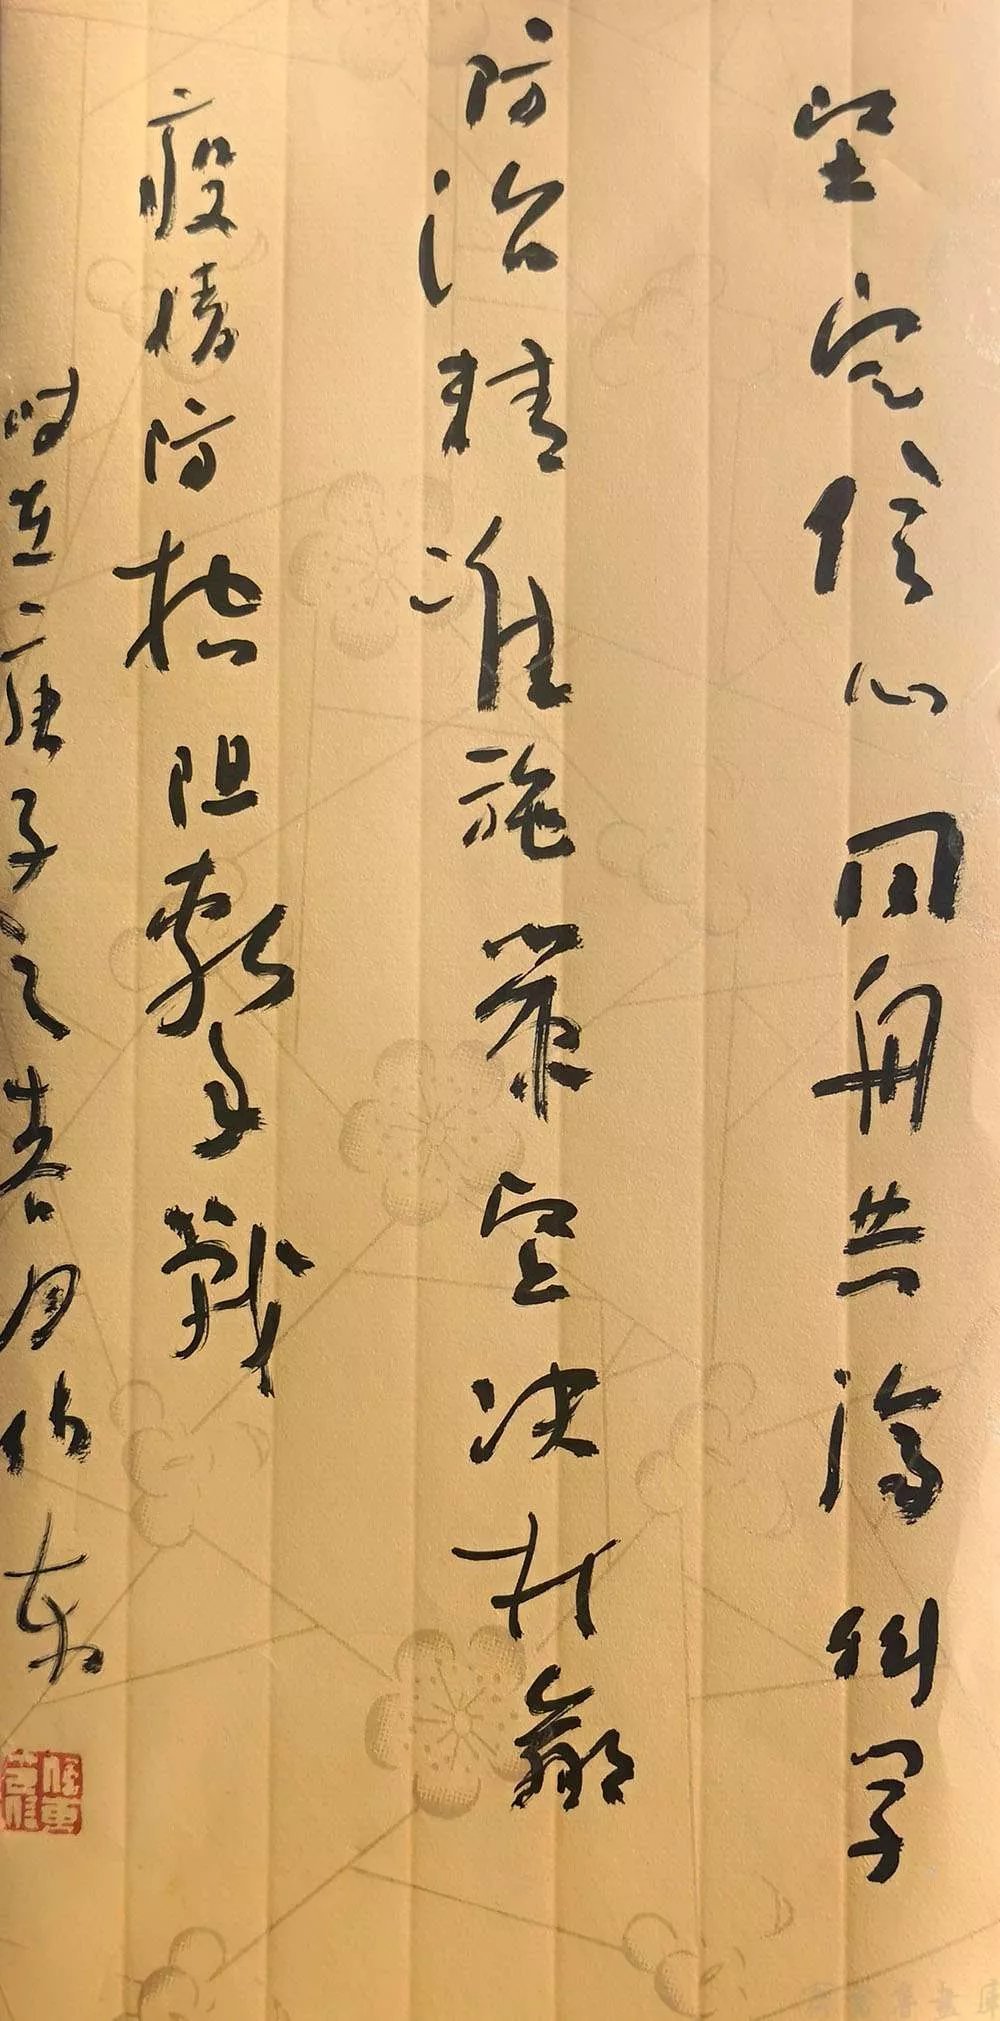 坚定信心同舟共济科学
防治精准施策坚决打赢
疫情防控阻击战
时在庚子之春周伯东